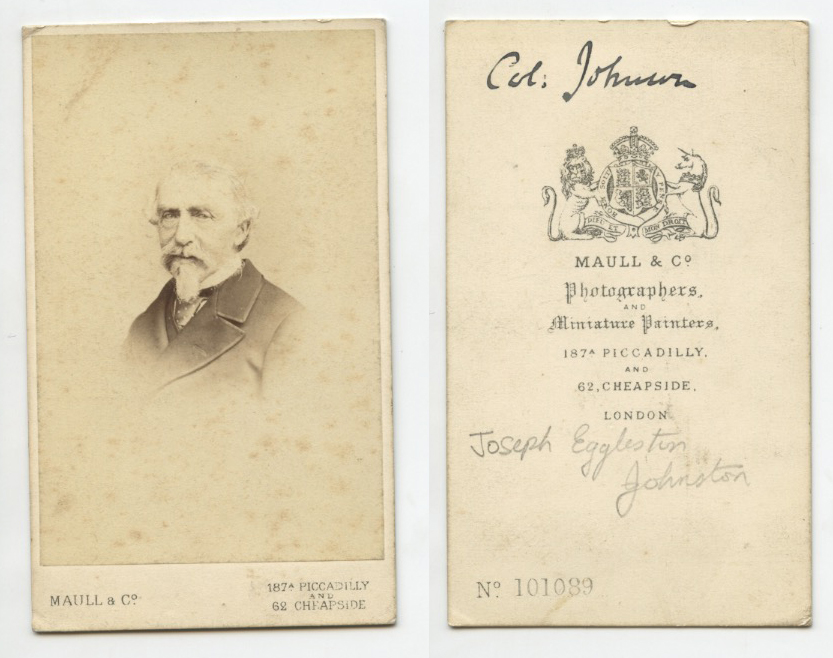 MAULL & Cº
187ᴬ PICCADILLY
AND
62 CHEAPSIDE
Col: Johnson
DIEU ET
MON DROIT
MAULL & Cº
Photographers,
AND
Miniature Painters,
187ᴬ PICCADILLY.
AND
62, CHEAPSIDE.
LONDON
Joseph Egglestin
Johnston
Nº 101089